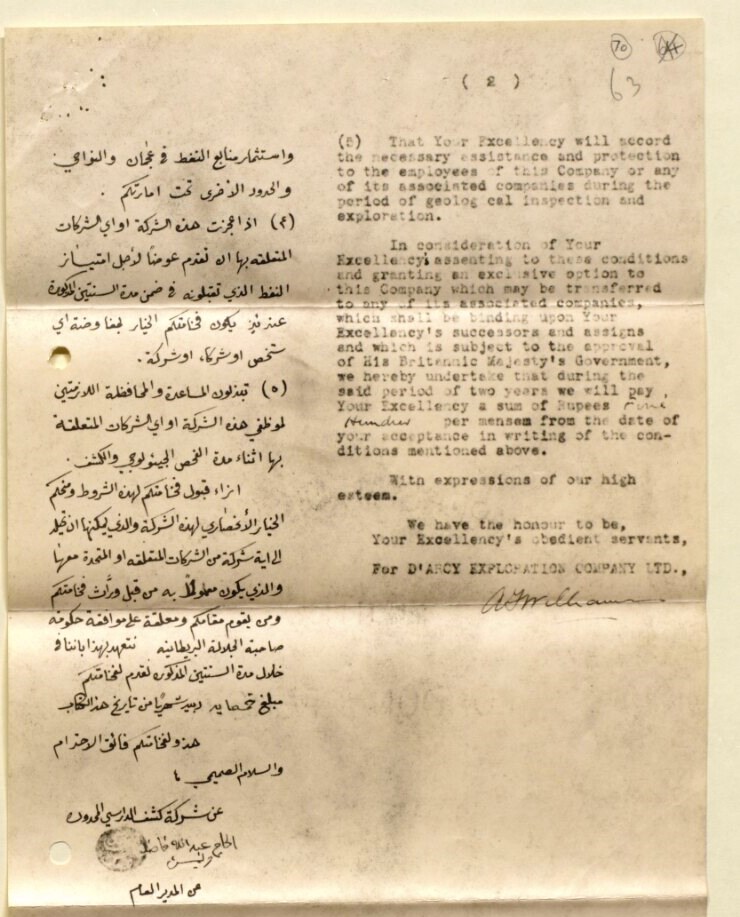 70
64
63
( 2 )
واستثمار منابع النفط في عجمان والنواحي
والحدود الأخرى تحت امارتكم .
(٤) اذا عجزت هذه الشركة او اي الشركات
المتعلقه بها ان تقدم عوضًا لأجل امتياز
النفط الذي تقبلونه في ضمن مدة السنتين المذكورة
يكون فخامتكم الخيار
شخص او شركاء، او شركة .
(٥) تبذلون المساعدة والمحافظة اللازمتين
لموظفي هذه الشركة او اي الشركات المتعلقة
بها اثناء مدة الفحص الجيئولوجي والكشف .
ازاء قبول فخامتكم لهذه الشروط ومنحكم
الخيار لهذه الشركة والذي يمكنها ان
الى اية شركة من الشركات المتعلقه او المتحدة معها
والذي يكون به من قبل ورّاث فخامتكم
ومن يقوم مقامكم ومعلقة على موافقة حكومة
صاحبة الجلالة البريطانيه نتعهد بهذا باننا في
خلال مدة السنتين المذكوره نقدم لفخامتكم
مبلغ خمسمايه ربيه شهريًا من تاريخ هذا الكتاب
هذا ولفخامتكم فائق الاحترام
والسلام الصميمي
عن شركة كشف الدارسي المحدودة
الحاج عبد الله
عن المدير العام
(5) That Your Excellency will accord
the necessary assistance and protection
to the employees of this Company or any
of its associated companies during the
period of geological inspection and
exploration.
In consideration of Your
Excellency assenting to these conditions
and granting an exclusive option to
this Company which may be transferred
to any of its associated companies,
which shall be binding upon Your
Excellency's successors and assigns
and which is subject to the approval
of His Britannic Majesty's Government,
we hereby undertake that during the
said period of two years we will pay
Your Excellency a sum of Rupees
Hundred per mensem from the date of
your acceptance in writing of the con-
ditions mentioned above.
With expressions of our high
esteem.
We have the honour to be,
Your Excellency's obedient servants,
For D'ARCY EXPLORATION COMPANY LTD.,